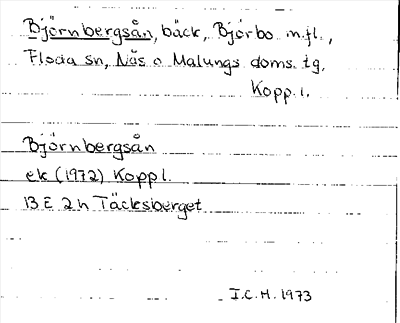 Björnbergsån, bäck, Björbo m.fl.,
Floda sn, Nås o Malungs doms. tg,
Kopp. l.
Björnbergsån
ek (1972) Koppl.
13 E 2 h Täcksberget
I.C.H. 1973